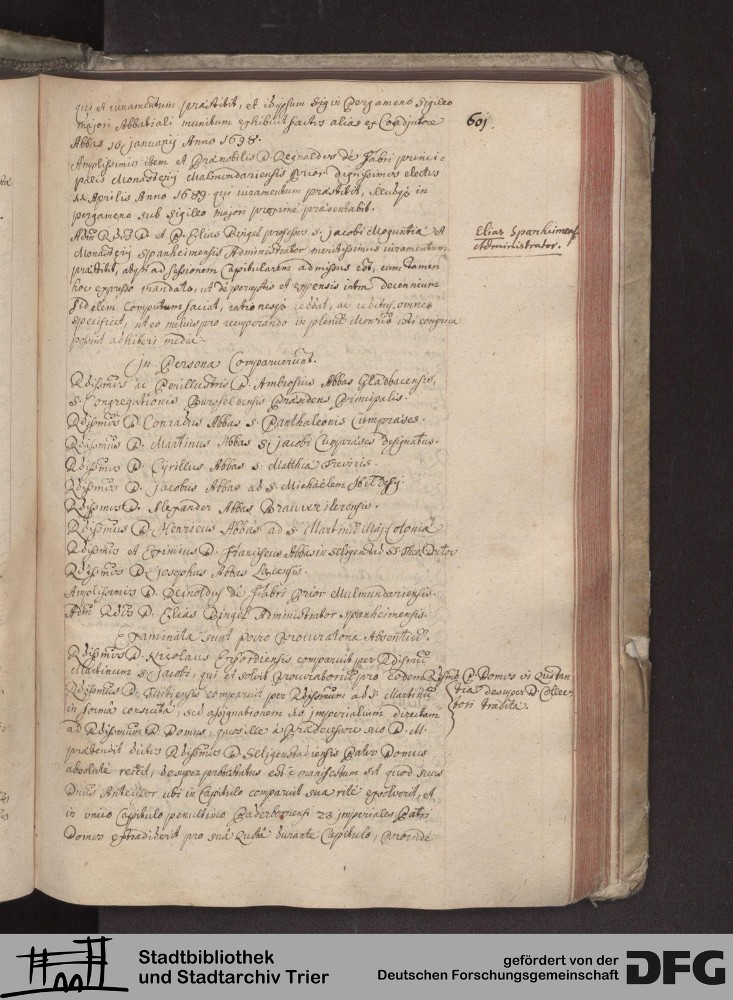 qui et iuramentum præstitit, et ibipsum sig in Pergameno sigillo
majori Abbatiali munitum exhibuit factus alias ex Coadjutore
Abbas 16 januarij Anno 1698.
601.
Amplissimus item et Prænobilis D. Reginaldus de Fabri princi-
palis Monasterij Malmundariensis Prior dignissimus electus
Aprilis Anno 1689 qui iuramentum præstitit, in
pergameno sub sigillo majori præsentabit.
Adm Rdus D. et P. Elias Bingel professus S. jacobi Moguntiæ et
Monasterij Spanheimensis Administrator meritissimus iuramentum
præstitit, atque ad sessionem Capitularem admissus est, cum tamen
hoc expresso mandato, ut de perceptis et expensis intra decennium
fidelem computum faciat, rationesque reddat, ac debitis omnes
specificet, ut eo melius pro recuperando in
possint adhiberi media.
Elias Spanheimens
Administrator.
In Persona Comparuerunt.
Rdissimus ac Perillustris D. Ambrosius Abbas Gladbacensis,
S. Congregationis Bursfeldensis Præsidens Principalis.
Rdissimus D. Conradus Abbas S. Panthaleonis Compræses.
Rdissimus D. Martinus Abbas S. jacobi Compræses designatus.
Rdissimus D. Cyrillus Abbas S. Matthiæ Treviris.
Rdissimus D. Jacobus Abbas ad S. Michaelem
Rdissimus D. Alexander Abbas Brauwilerensis.
Rdissimus D. Henricus Abbas ad S. Martinum Maj. Coloniæ
Rdissimus et Eximius D. Franciscus Abbas in Seligenstad SS. Theol. Doctor
Rdissimus D. Josephus Abbas Lacensis.
Amplissimus D. Reinoldus de Fabri Prior Malmundariensis.
Adm Rdus D. Elias Bingel Administrator Spanheimensis.
Examinata sunt porro Procuratoria Absentium.
Rdissimus D. Nicolaus Erfordiensis comparuit per Rdissimum
Martinum S. Jacobi, qui et solvit Procuratorium pro eodem Rdissimo P. Domus vi Quitan-
tiæ desuper D. Collec-
tori tradita.
Rdissimus D. Tuitiensis comparuit per Rdissimum ad S. Martinum
in forma consueta, sed assignationem imperialium directam
ad Rdissimum D. Domus, quos ille à Prædecessore suo D. M.
prætendit dictus Rdissimus D. Seligenstadiensis Pater Domus
absolute reiecit, desuper protestatus est manifestum sit quod suus
Dnus Antecessor ubi in Capitulo comparuit sua rite exsolverit, et
in unico Capitulo penultimo Paderbornensi 23 imperiales Patri
Domus extradiderit pro sua Quota durante Capitulo, proinde
Stadtbibliothek
und Stadtarchiv Trier
gefördert von der
Deutschen Forschungsgemeinschaft
DFG